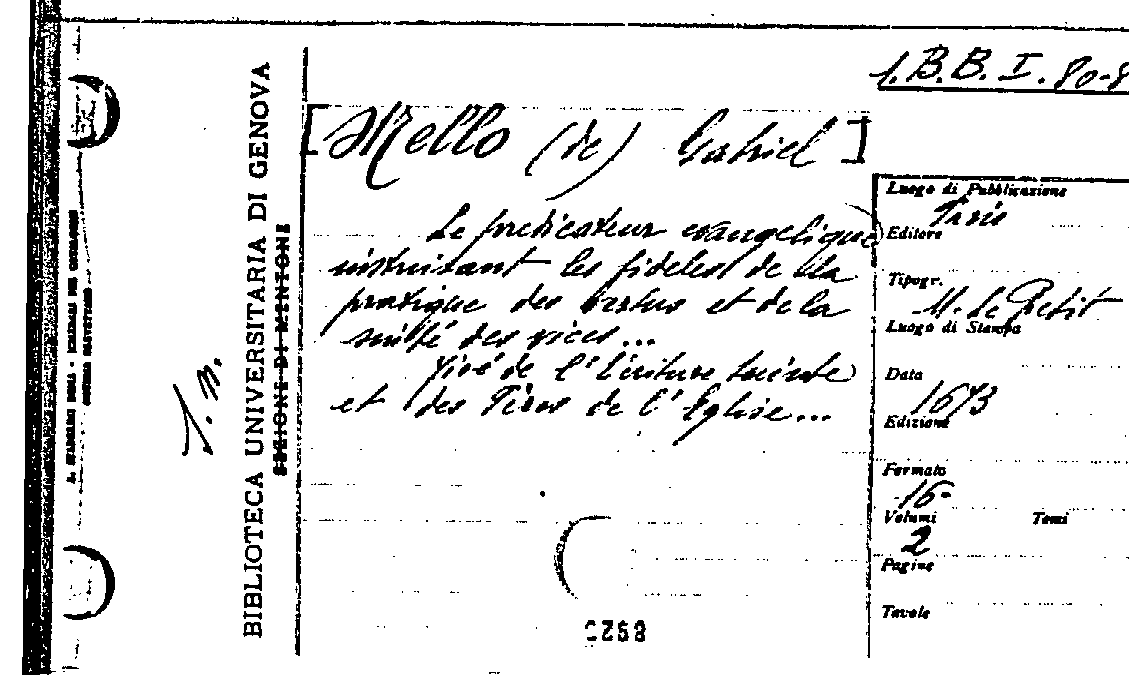 1.B.B.I.80-8
[Mello (de) Gabriel]
Le predicateur evangelique
instruisant les fideles de la
pratique des vertus et de la
suite des vices...
Tiré de l'Ecriture Sainte
et des Pères de l'Eglise...
Luogo di Pubblicazione
Paris
Editore
Tipogr.
M. le Petit
Luogo di Stampa
Data
1673
Edizione
Formato
16°
Volumi Tomi
2
Pagine
Tavole
BIBLIOTECA UNIVERSITARIA DI GENOVA
SEZIONE DI MENTONE